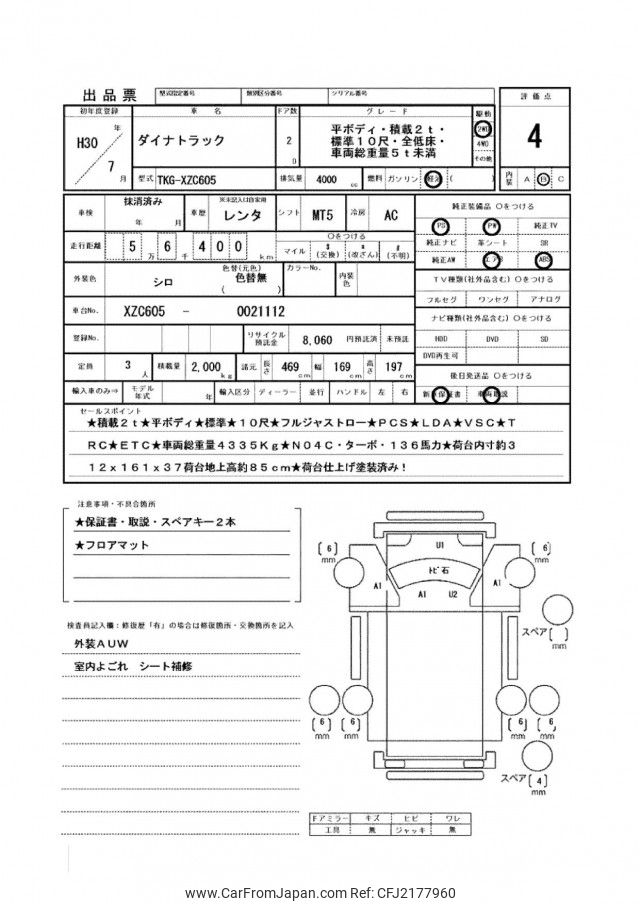 出品票 型式指定番号 類別区分番号 シリアル番号
評価点
4
内装 A B C
初年度登録 車名 ドア数 グレード 駆動
H30 年 7 月
ダイナトラック
2 D
平ボディ・積載2t・
標準10尺・全低床・
車両総重量5t未満
2WD
4WD
その他
型式 TKG-XZC605 排気量 4000 cc 燃料 ガソリン 軽油 ( )
車検 抹消済み 年 月 車歴 ※未記入は自家用 レンタ シフト MT5 冷房 AC
走行距離 5 万 6 千 4 0 0 km
○をつける
マイル $ (交換) * (改ざん) # (不明)
外装色 シロ 色替(元色) 色替無 ( ) カラーNo. 内装色
車台No. XZC605 - 0021112
登録No. リサイクル預託金 8,060 円預託済 未預託
定員 3 人 積載量 2,000 kg 諸元 長さ 469 cm 幅 169 cm 高さ 197 cm
輸入車のみ⇒ モデル年式 年 輸入区分 ディーラー 並行 ハンドル 左 右
純正装備品 ○をつける
PS PW 純正TV
純正ナビ 革シート SR
純正AW エアB ABS
TV種類(社外品含む) ○をつける
フルセグ ワンセグ アナログ
ナビ種類(社外品含む) ○をつける
HDD DVD SD
DVD再生可
後日発送品 ○をつける
新車保証書 車両取説
セールスポイント
★積載2t★平ボディ★標準★10尺★フルジャストロー★PCS★LDA★VSC★T
RC★ETC★車両総重量4335Kg★N04C・ターボ・136馬力★荷台内寸約3
12x161x37荷台地上高約85cm★荷台仕上げ塗装済み!
注意事項・不具合箇所
★保証書・取説・スペアキー2本
★フロアマット
検査員記入欄:修復歴「有」の場合は修復箇所・交換箇所を記入
外装AUW
室内よごれ シート補修
U1
トビ石
A1 A1 U2 A1
(6) mm (6) mm
スペア( ) mm
(6) mm (6) mm (6) mm (6) mm
スペア(4) mm
ドアミラー キズ ヒビ ワレ
工具 無 ジャッキ 無
www.CarFromJapan.com Ref: CFJ2177960